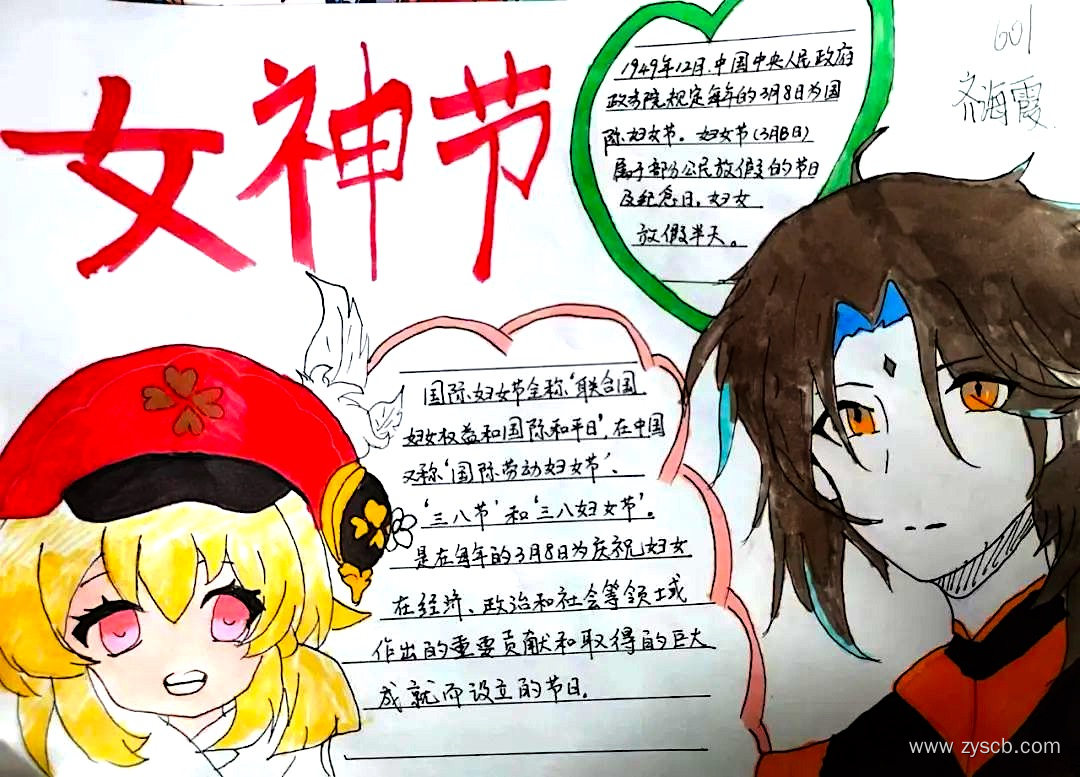 女神节
601
齐海霞
1949年12月,中国中央人民政府
政务院规定每年的3月8日为国
际妇女节。妇女节(3月8日)
属于部分公民放假的节日
及纪念日,妇女
放假半天。
国际妇女节全称‘联合国
妇女权益和国际和平日’,在中国
又称‘国际劳动妇女节’、
‘三八节’和‘三八妇女节’。
是在每年的3月8日为庆祝妇女
在经济、政治和社会等领士或
作出的重要贡献和取得的巨大
成就而设立的节日。
www zyscb.com